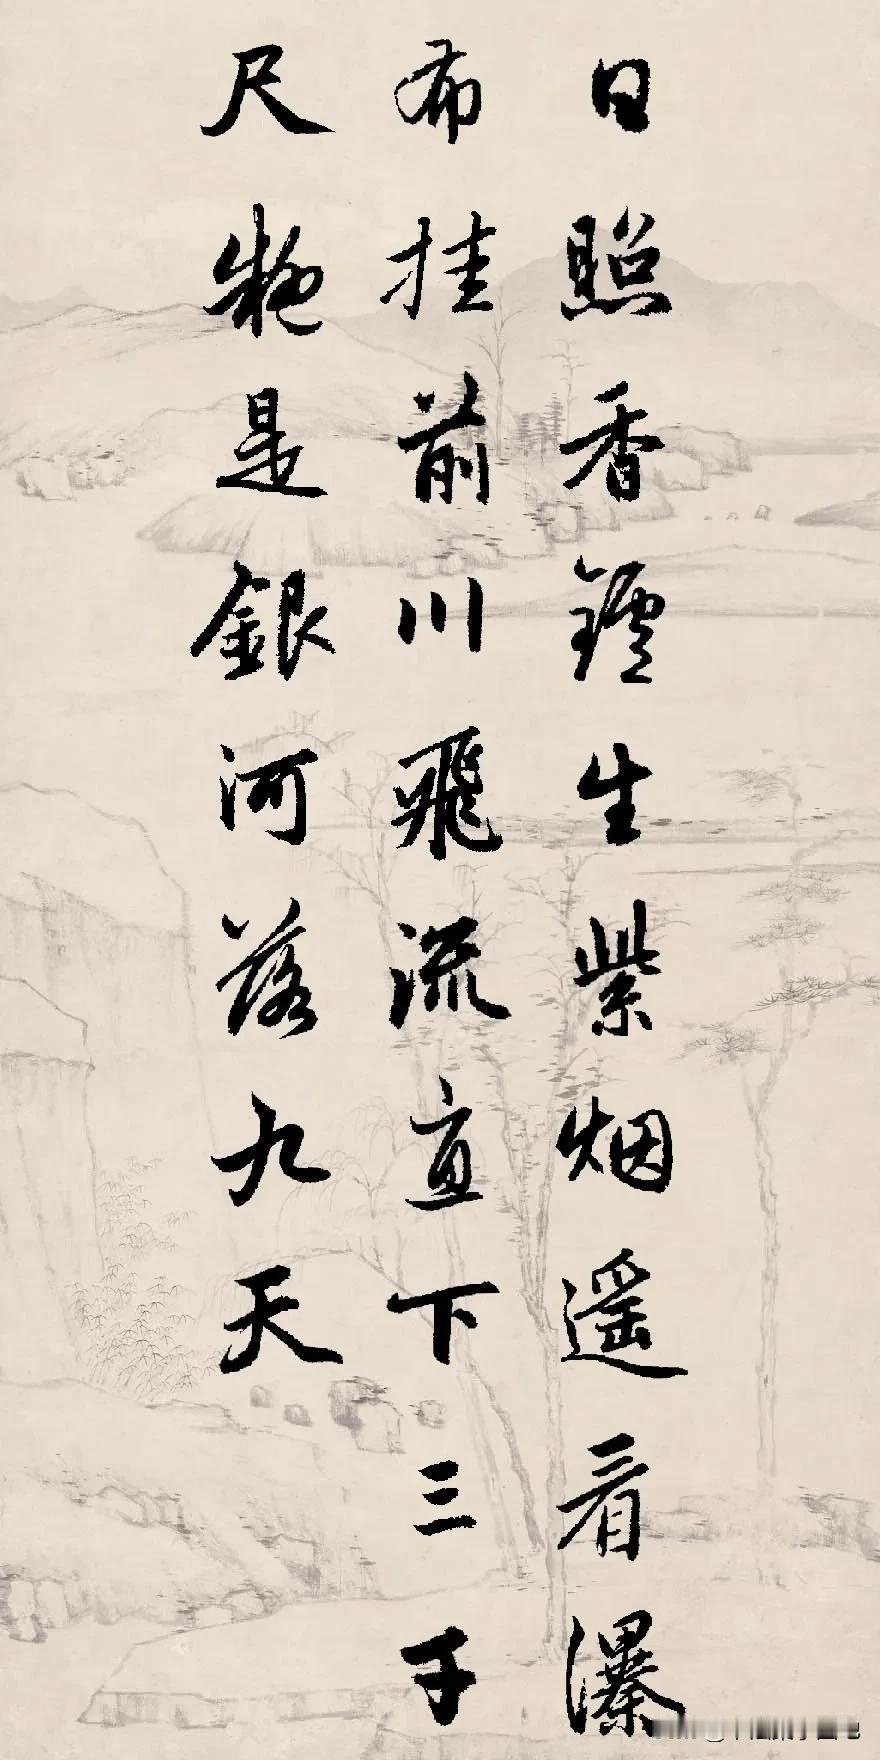 日照香鑪生紫烟遥看瀑
布挂前川飛流直下三千
尺疑是銀河落九天